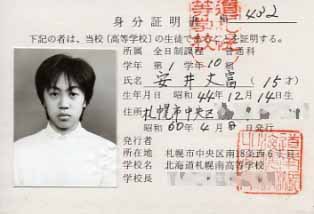 身分証明書 第 482
下記の者は、当校(高等学校)の生徒であることを証明する。
所属 全日制課程 普通科
学年 第 1 学年 10 組
氏名 安井丈富 ( 15 才)
生年月日 昭和 44年 12月 14日生
住所 札幌市中央区
昭和 60年 4月 日発行
発行者
所在地 札幌市中央区南18条西6丁目
学校名 北海道札幌南高等学校
学校長